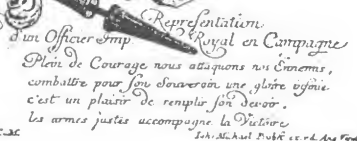 Representation
d'un Officier Imp Royal en Campagne
Plein de Courage nous attaquons nos Ennemis,
combattre pour son Souverain une gloire
c'est un plaisir de remplir son devoir.
les armes justes accompagne la Victoire
Joh. Michael